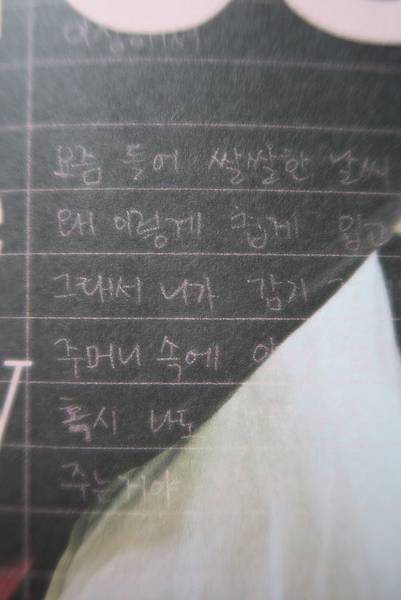 요즘 들어 쌀쌀한 날씨
왜 이렇게 쉽게 입고
그래서 니가 감기
주머니 속에
혹시 나도
주는거야